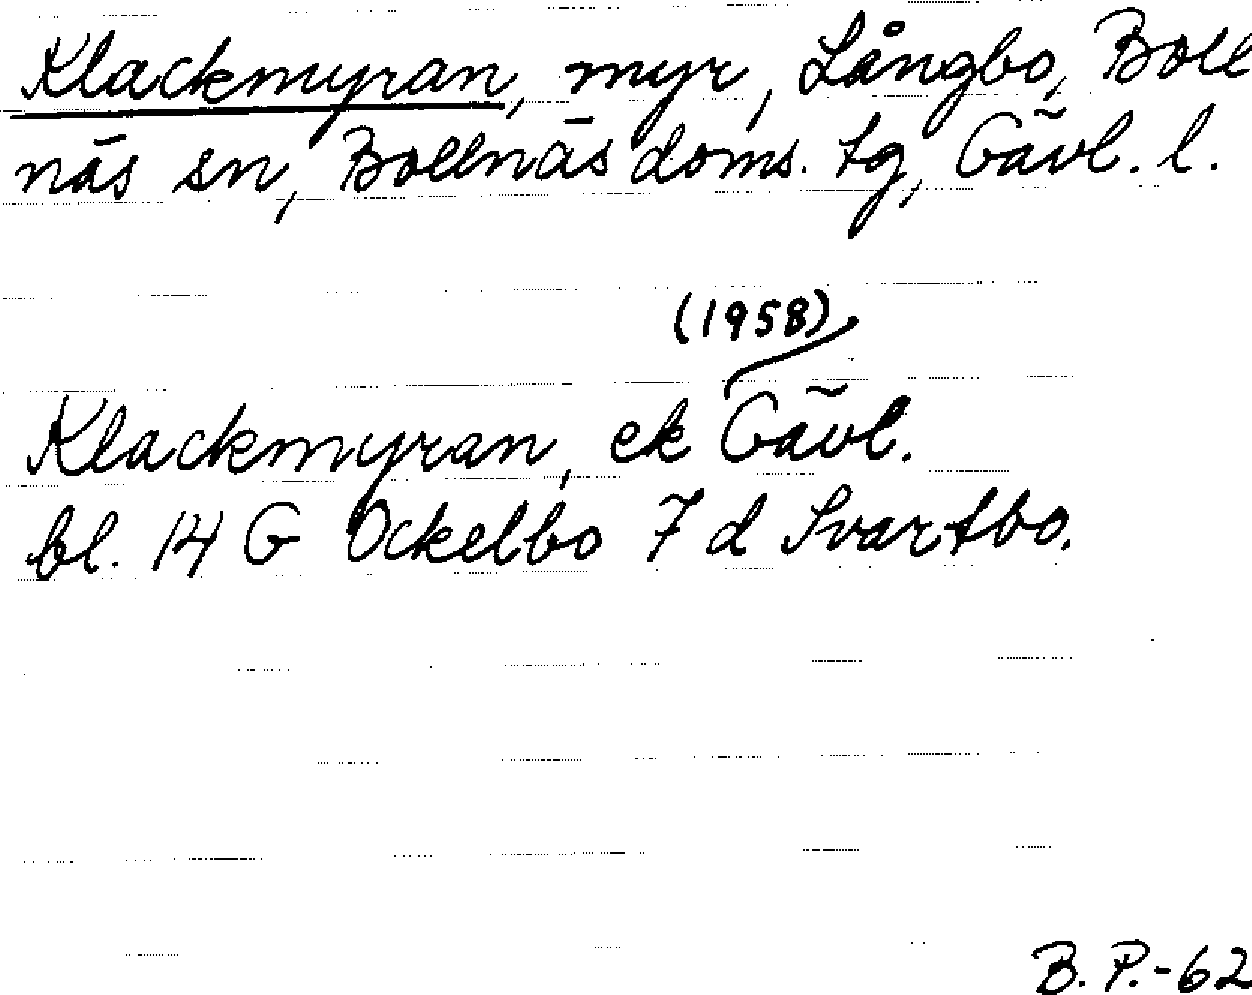 Klackmyran, myr, Långbo, Boll
näs sn, Bollnäs doms. tg, Gävl. l.
(1958)
Klackmyran, ek Gävl.
bl. 14 G Ockelbo 7 d Svartbo.
B. P.-62